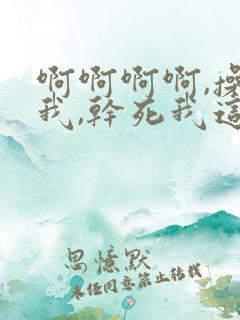 啊啊啊啊,操
我,幹死我這
思憶默
未经同意禁止转载